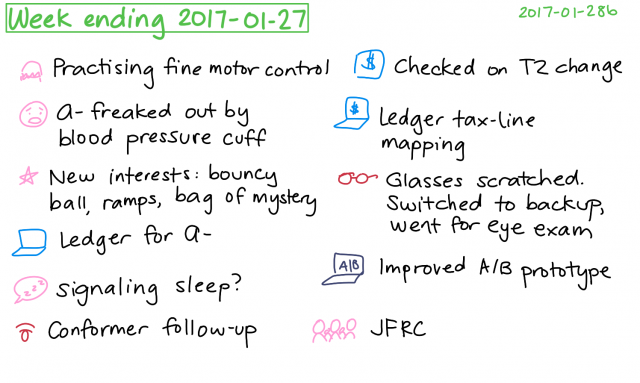 Week ending 2017-01-27
2017-01-28b
Practising fine motor control
A- freaked out by
blood pressure cuff
New interests: bouncy
ball, ramps, bag of mystery
Ledger for A-
zzz
signaling sleep?
Conformer follow-up
$
Checked on T2 change
$
Ledger tax-line
mapping
Glasses scratched.
Switched to backup,
went for eye exam
A/B
Improved A/B prototype
JFRC